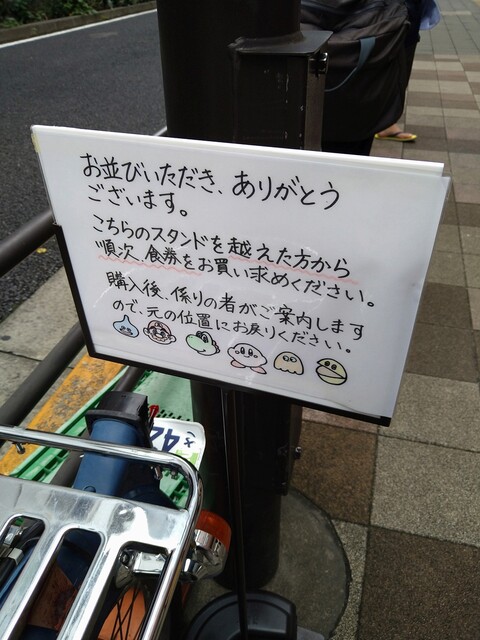 お並びいただき、ありがとう
ございます。
こちらのスタンドを越えた方から
順次、食券をお買い求めください。
購入後、係りの者がご案内します
ので、元の位置にお戻りください。
42